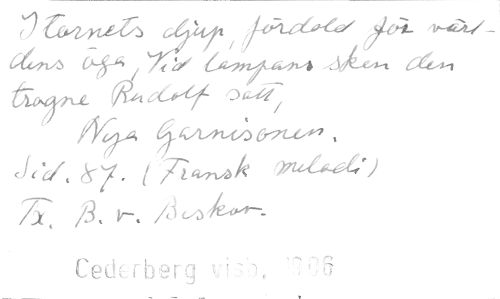 I tornets djup, fördold för värl-
dens öga, Vid lampans sken den
trogne Rudolf satt,
Nya Garnisonen.
Sid. 87. (Fransk melodi)
Tx. B. v. Beskow.
Cederberg visb. 1906